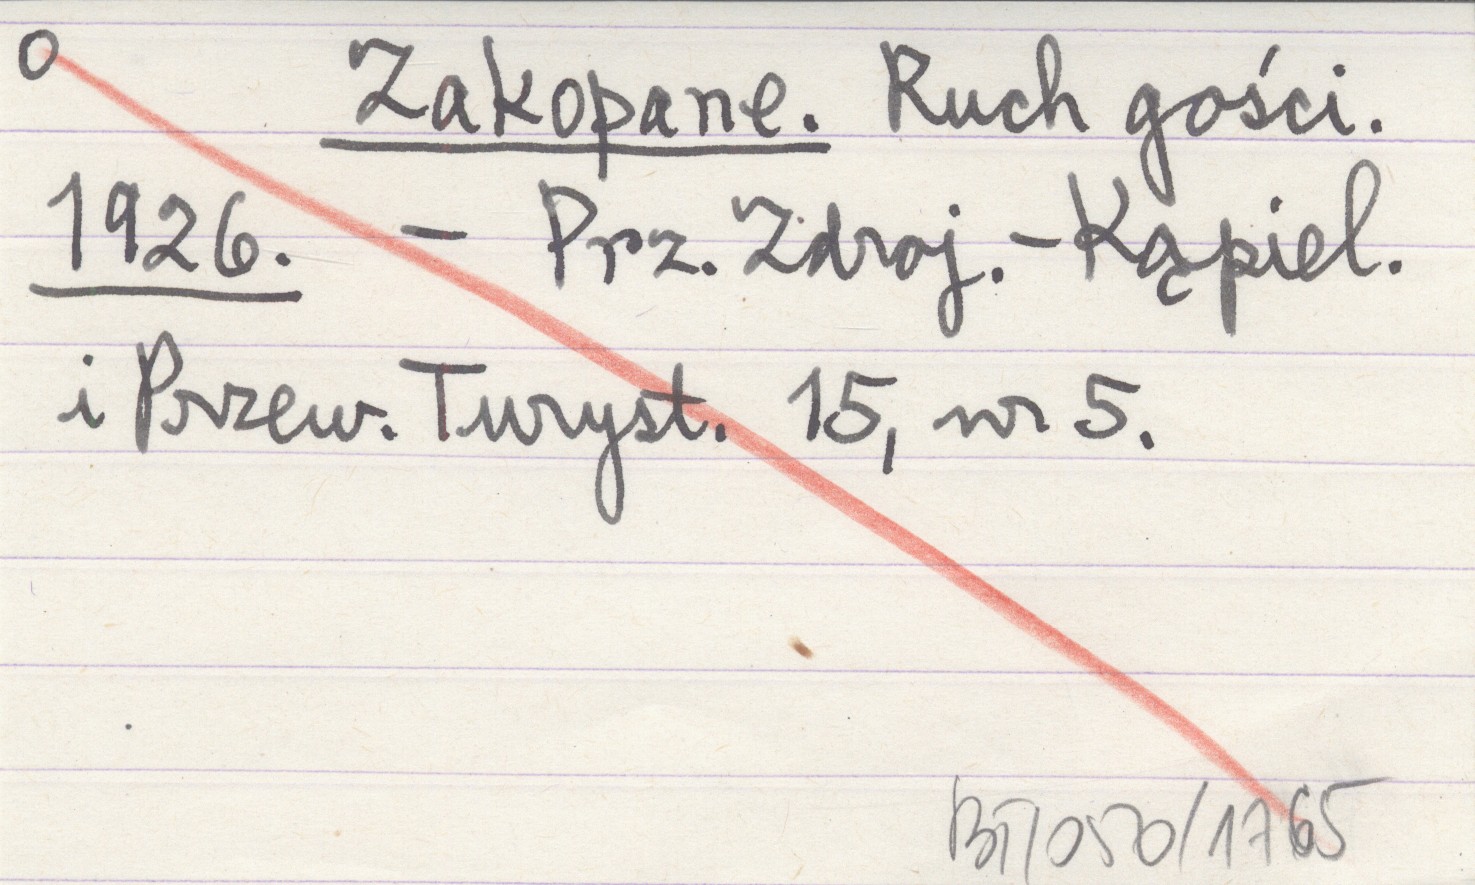 O Zakopane. Ruch gości.
1926. - Prz. Zdroj.-Kąpiel.
i Przew. Turyst. 15, nr 5.
BT/050/1765